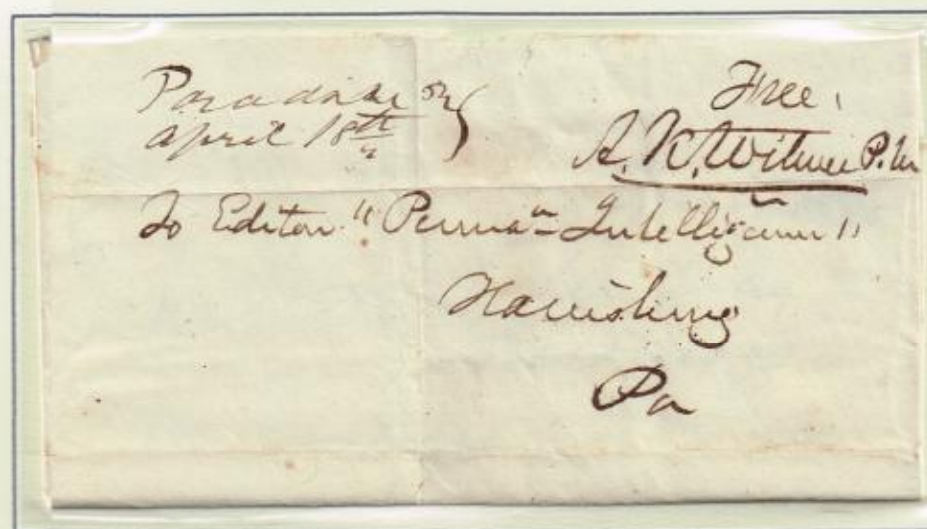 Paradise Pa
April 18th
Free,
A. K. Witmer P.M
To Editor "Penna Intelligencer"
Harrisburg
Pa